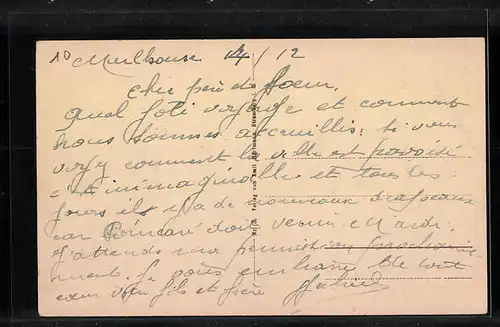 10 Mulhouse 4 / 12
Cher père et Soeur,
Quel joli voyage et comment
nous sommes accueillis; si vous
voyez comment la ville est pavoisé
c'est inimaginable et tous les
jours ils y a de nouveaux drapeaux
car Poincaré doit venir Mardi.
J'attends ma permission prochaine-
ment. Je vous embrasse de tout
coeur votre fils et frère Gabriel